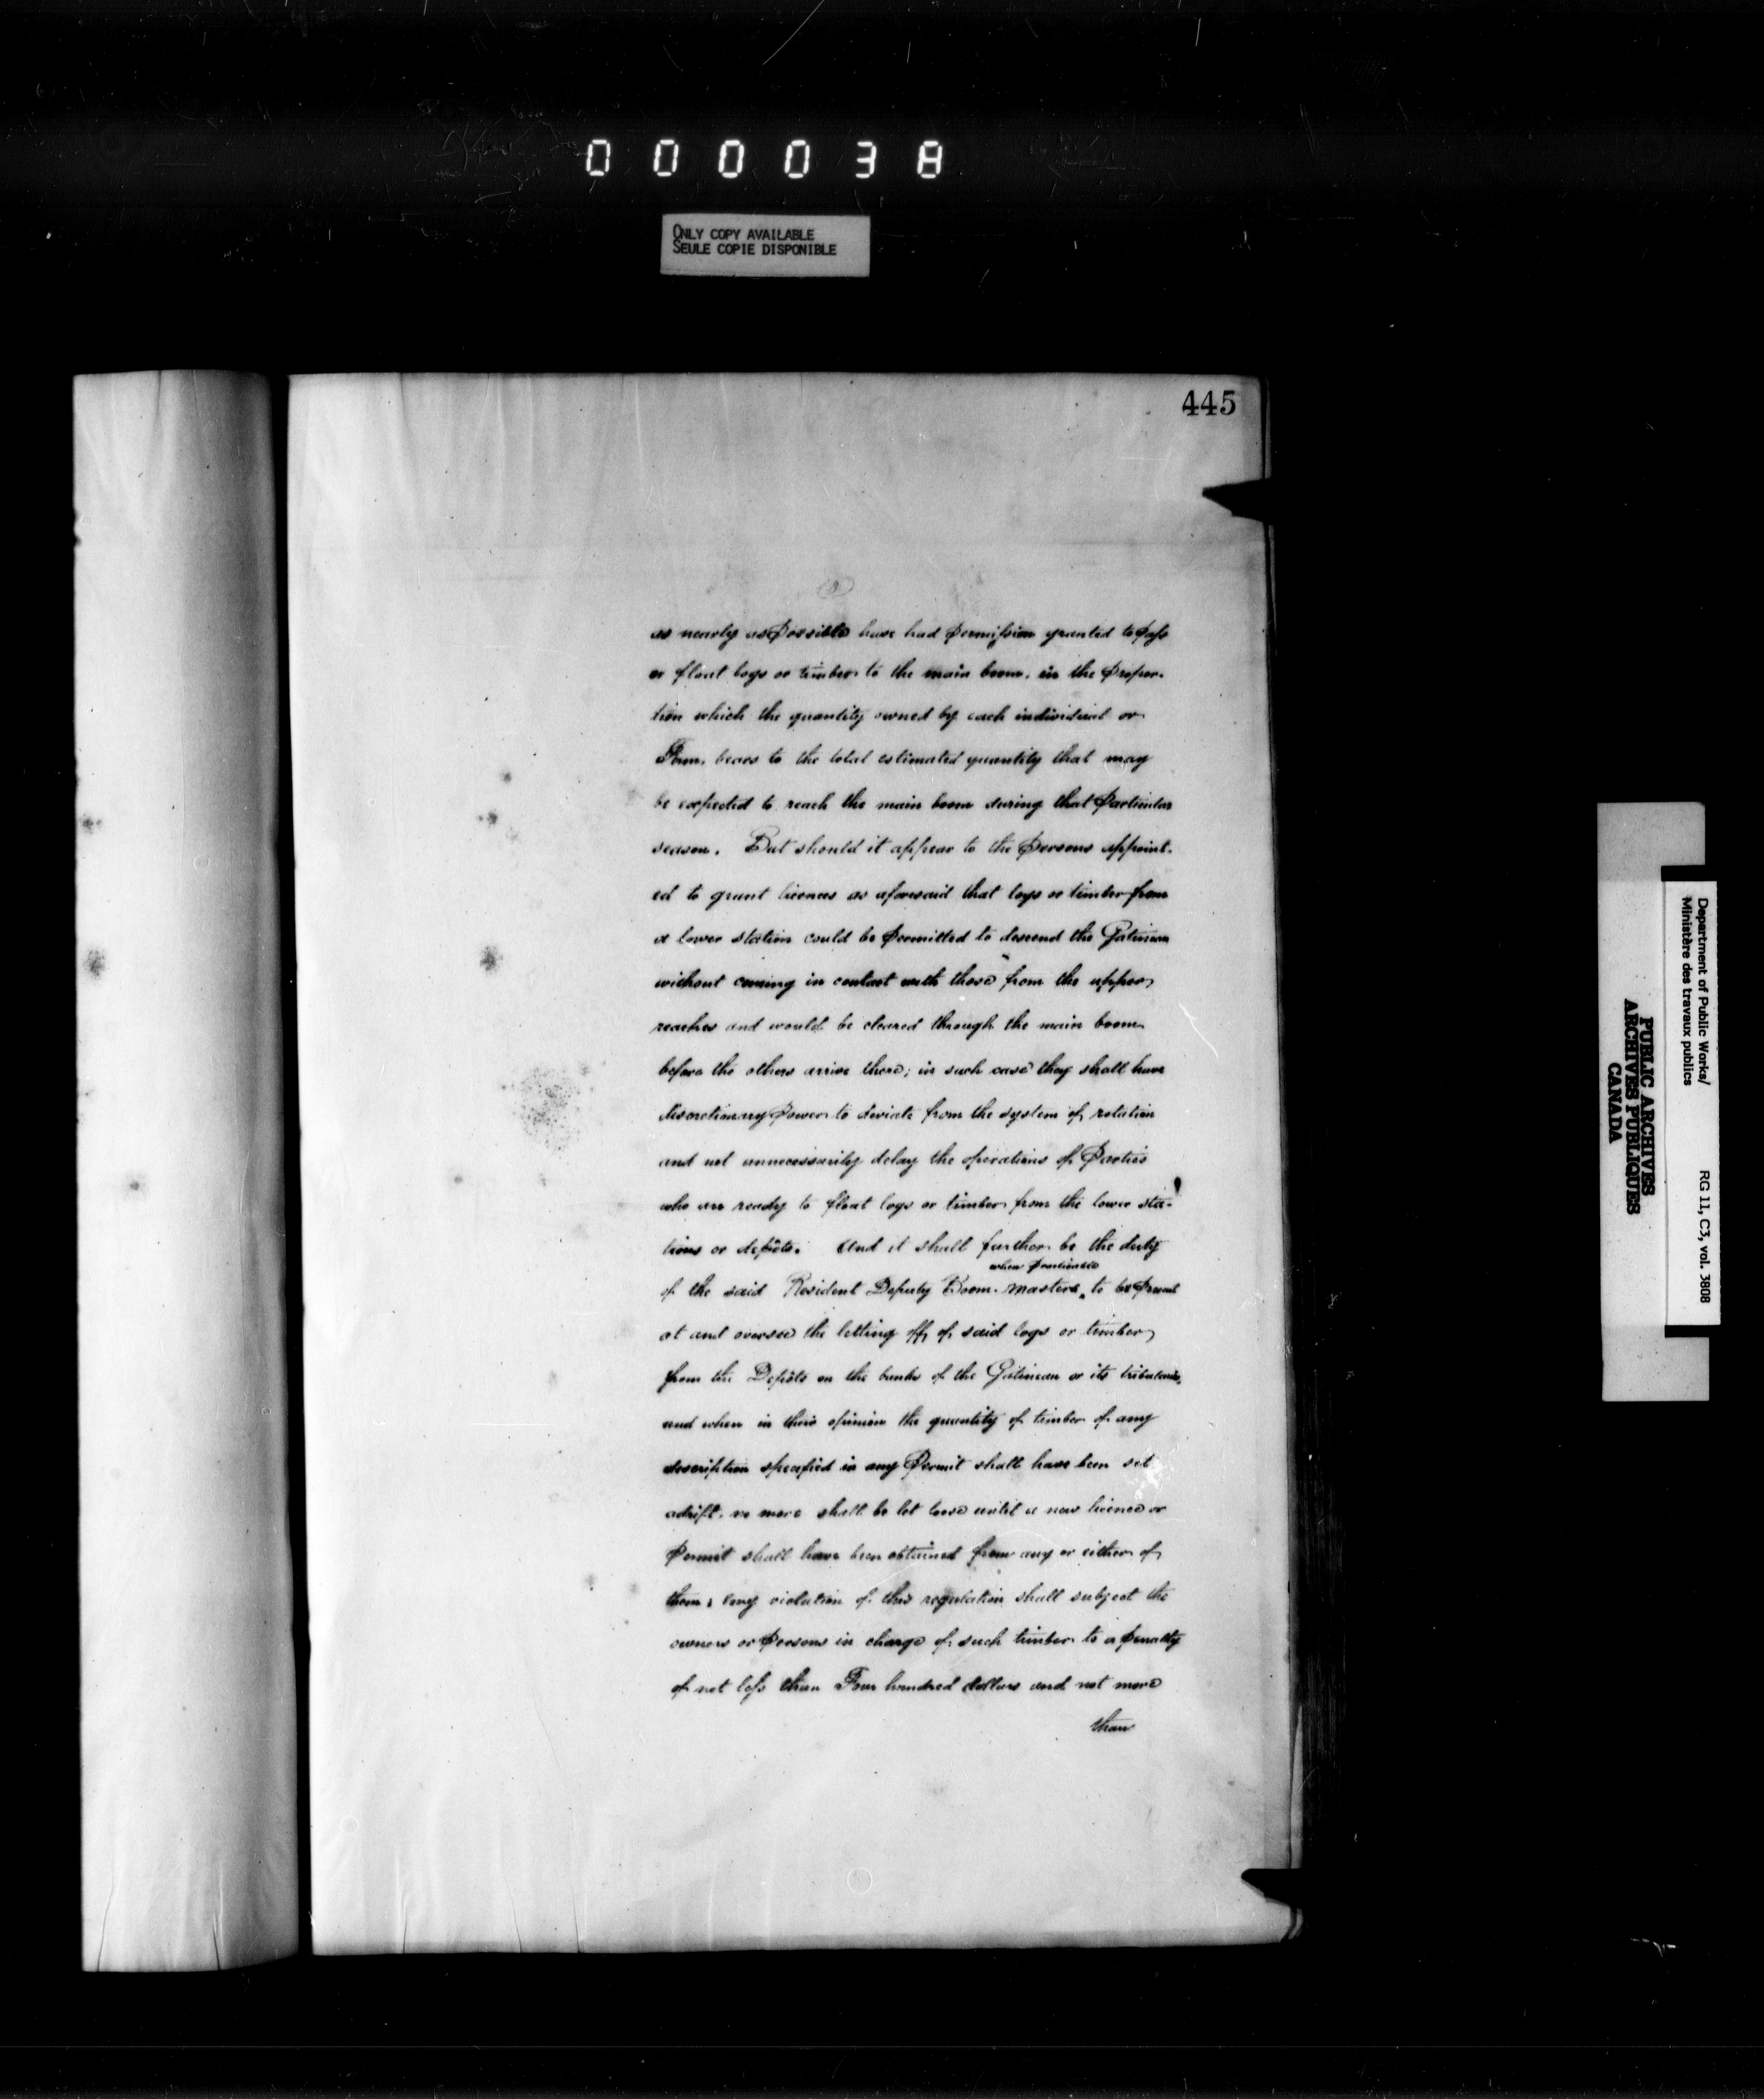 000038
ONLY COPY AVAILABLE
SEULE COPIE DISPONIBLE
445
as nearly as possible have had permission granted to pass
or float logs or timber to the main boom, in the propor-
tion which the quantity owned by each individual or
Firm, bears to the total estimated quantity that may
be expected to reach the main boom during that particular
season. But should it appear to the persons appoint-
ed to grant licences as aforesaid that logs or timber from
a lower station could be permitted to descend the Gatineau
without coming in contact with those from the upper
reaches and would be cleared through the main boom
before the others arrive there; in such case they shall have
discretionary power to deviate from the system of rotation
and not unnecessarily delay the operations of parties
who are ready to float logs or timber from the lower sta-
tions or depôts. And it shall further be the duty
when practicable
of the said Resident Deputy Boom-Masters to be present
at and oversee the letting off of said logs or timber
from the Depôts on the banks of the Gatineau or its tributaries,
and when in their opinion the quantity of timber of any
description specified in any Permit shall have been set
adrift, no more shall be let loose until a new licence or
Permit shall have been obtained from any or either of
them; any violation of this regulation shall subject the
owners or persons in charge of such timber to a penalty
of not less than Four hundred dollars and not more
than
Department of Public Works/
Ministère des travaux publics
RG 11, C3, vol. 3808
PUBLIC ARCHIVES
ARCHIVES PUBLIQUES
CANADA